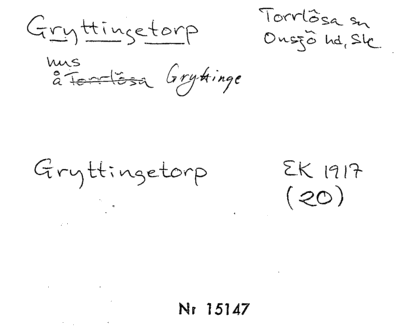 Gryttingetorp
Torrlösa sn
Onsjö hd, Sk
hus
å Torrlösa Gryttinge
Gryttingetorp
EK 1917
(20)
Nr 15147